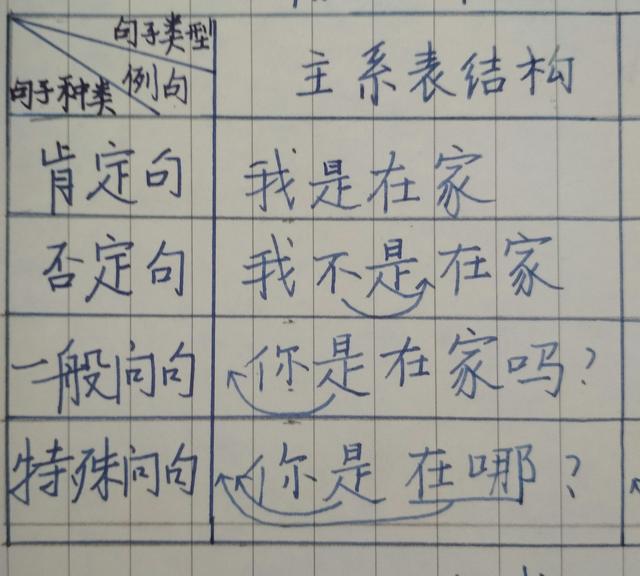 句子类型
例句
句子种类
主系表结构
肯定句
我是在家
否定句
我不是在家
一般问句
你是在家吗?
特殊问句
你是在哪?